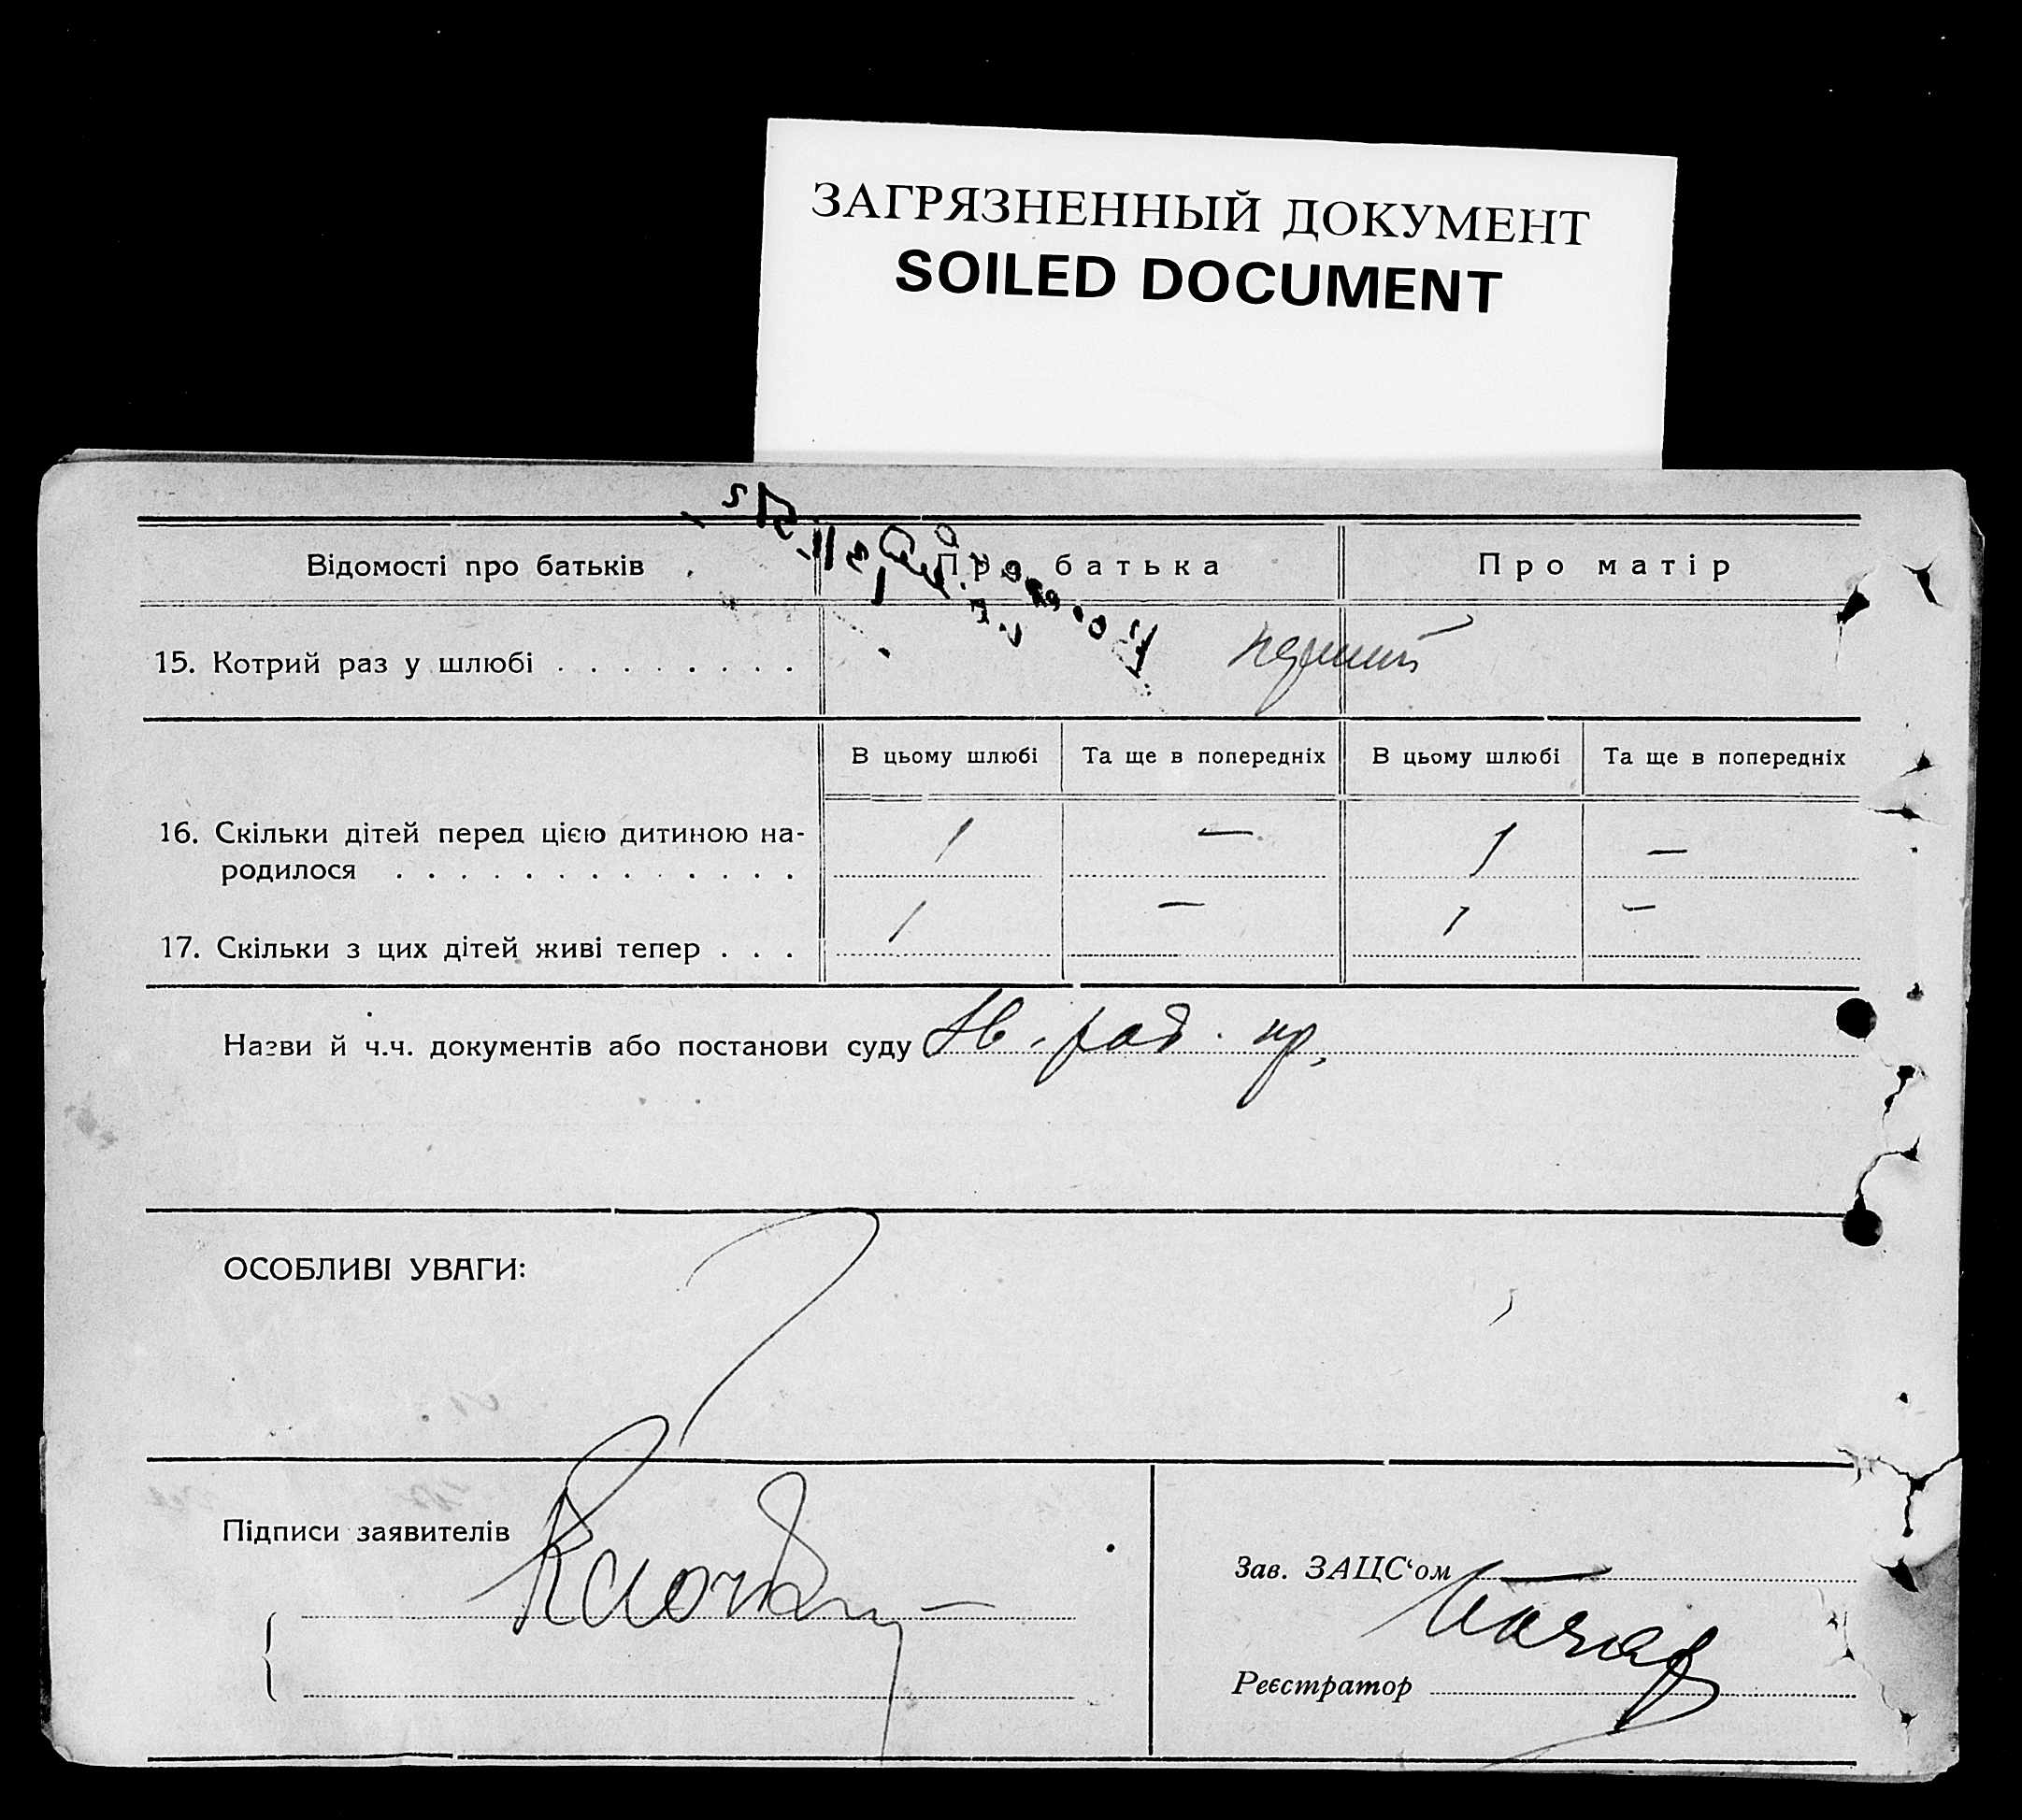 ЗАГРЯЗНЕННЫЙ ДОКУМЕНТ
SOILED DOCUMENT
Відомості про батьків
Про батька
Про матір
15. Котрий раз у шлюбі . . . . . . . .
перший
В цьому шлюбі
Та ще в попередніх
В цьому шлюбі
Та ще в попередніх
16. Скільки дітей перед цією дитиною на-
родилося . . . . . . . . . . . . . .
1 — 1 —
17. Скільки з цих дітей живі тепер . . .
1 — 1 —
Назви й ч.ч. документів або постанови суду
ОСОБЛИВІ УВАГИ:
Підписи заявителів
Зав. ЗАЦС‘ом
Реєстратор